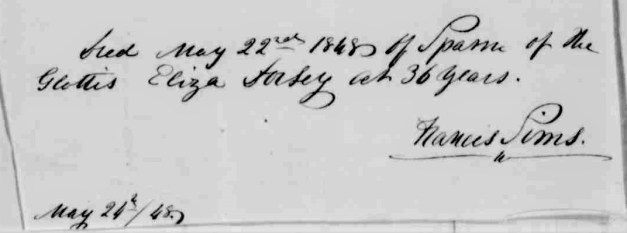 Died May 22nd 1848 of Spasm of the
Glottis Eliza aet 36 years.
Francis Sims.
May 24th/48